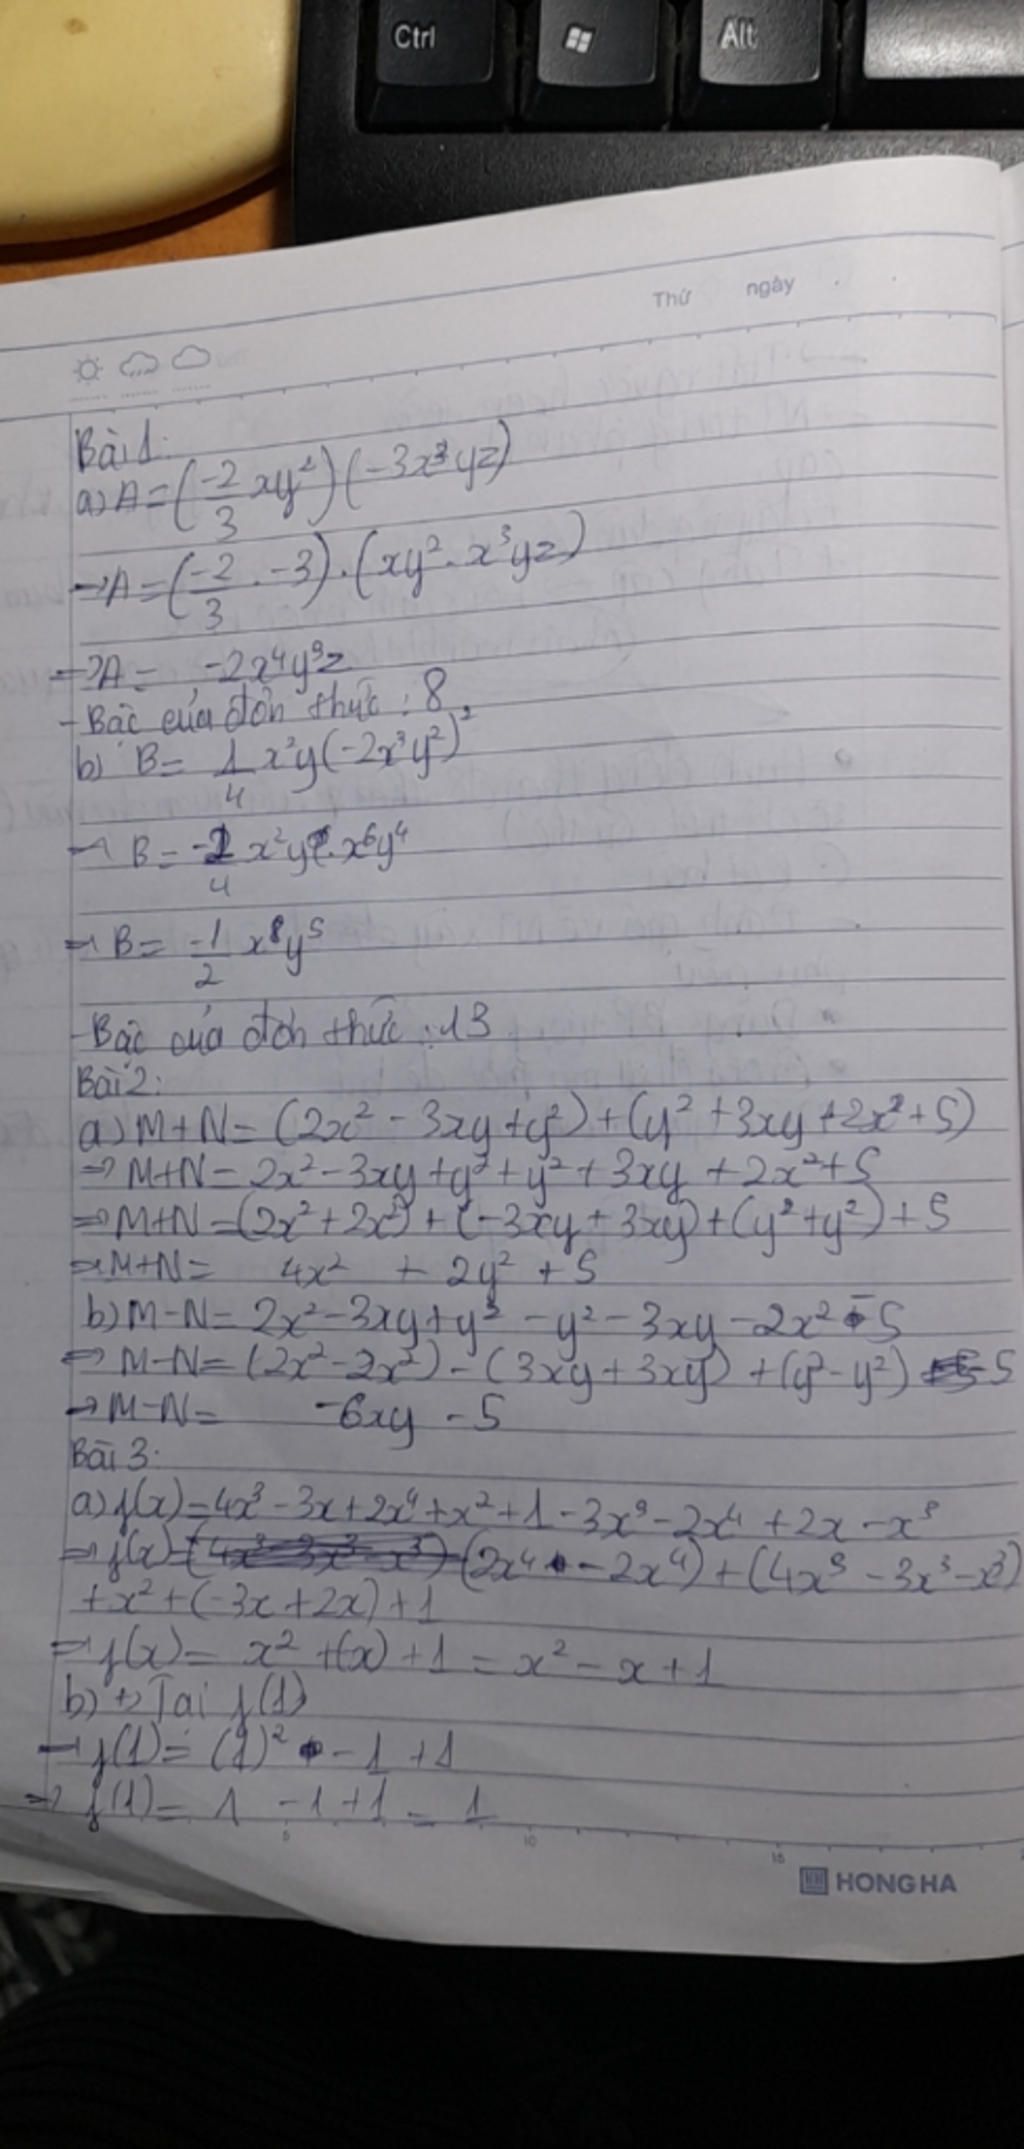 Ctrl
Alt
Thứ ngày
Bài 1:
a) A = (-2/3 xy²)(-3x³yz)
→ A = (-2/3 . -3).(xy² . x³yz)
→ A = -2x⁴y³z
- Bậc của đơn thức : 8
b) B = 1/4 x²y(-2x³y²)²
→ B = -2/4 x²y . x⁶y⁴
→ B = -1/2 x⁸y⁵
- Bậc của đơn thức : 13
Bài 2:
a) M+N = (2x² - 3xy + y²) + (y² + 3xy + 2x² + 5)
=> M+N = 2x² - 3xy + y² + y² + 3xy + 2x² + 5
=> M+N = (2x² + 2x²) + (-3xy + 3xy) + (y² + y²) + 5
=> M+N = 4x² + 2y² + 5
b) M-N = 2x² - 3xy + y² - y² - 3xy - 2x² - 5
=> M-N = (2x² - 2x²) - (3xy + 3xy) + (y² - y²) - 5
→ M-N = -6xy - 5
Bài 3:
a) f(x) = 4x³ - 3x + 2x⁴ + x² + 1 - 3x³ - 2x⁴ + 2x - x³
=> f(x) = (2x⁴ - 2x⁴) + (4x³ - 3x³ - x³)
+ x² + (-3x + 2x) + 1
=> f(x) = x² + (x) + 1 = x² - x + 1
b) +) Tại f(1)
→ f(1) = (1)² - 1 + 1
=> f(1) = 1 - 1 + 1 = 1
5 10 15
HONG HA